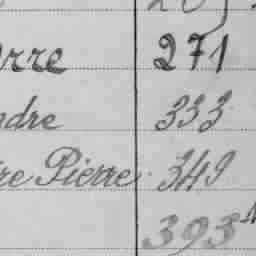 rre 271
ndre 333
re Pierre 349
393